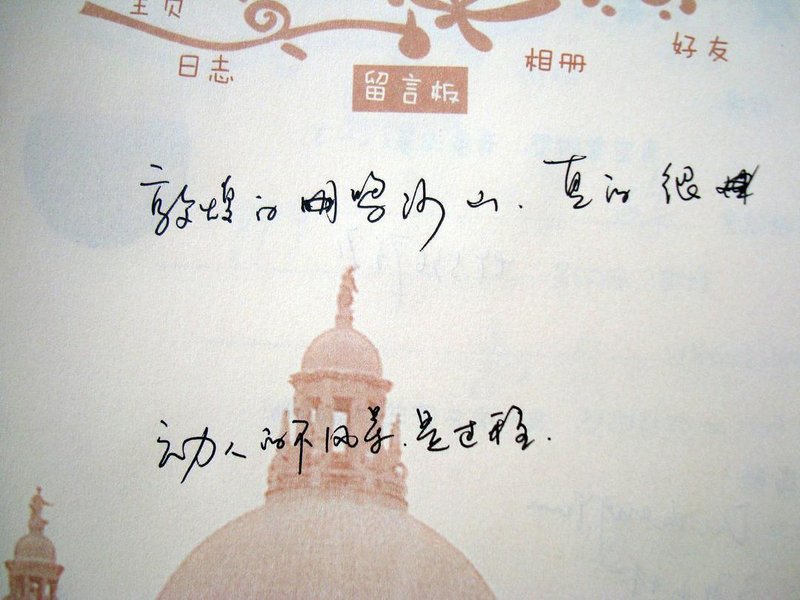 主页
日志
留言板
相册
好友
敦煌的鸣沙山.真的很美
动人的不风景.是过程.